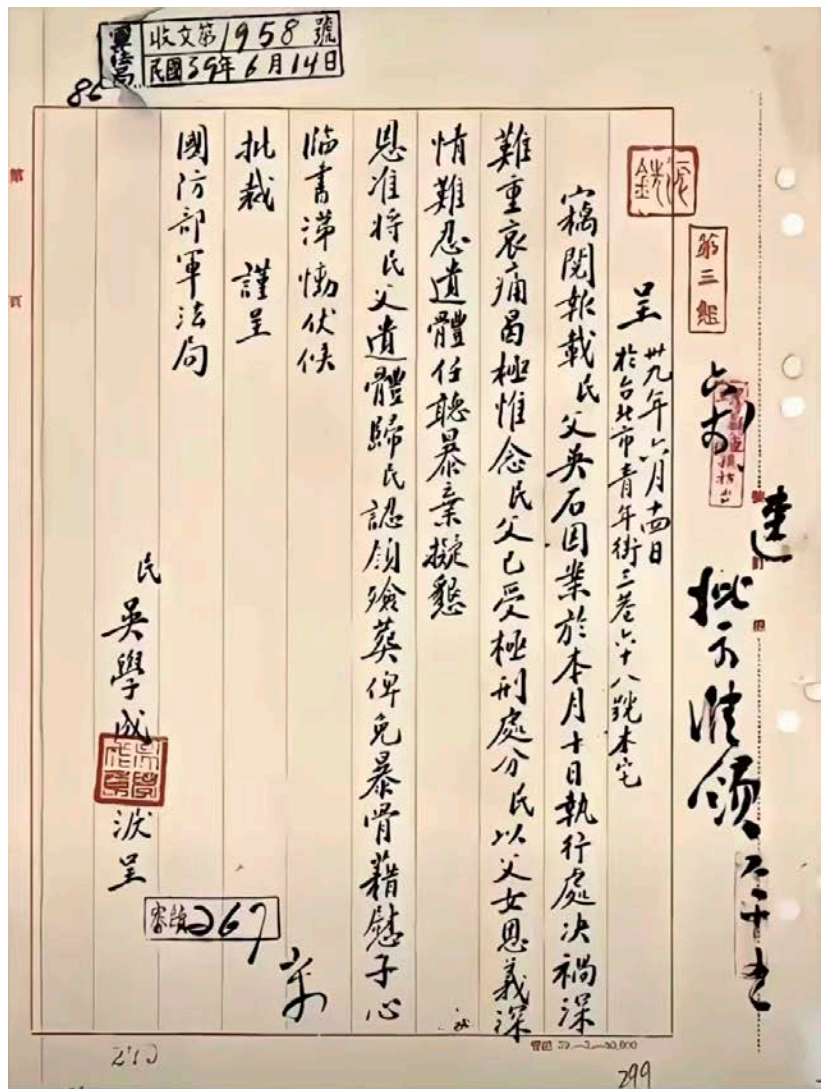 軍法局
收文第1958號
民國39年6月14日
86
第三組
速
批示准領
呈
卅九年六月十四日
於台北市青年街三巷六十八號本宅
竊閱報載民父吳石因業於本月十日執行處決禍深
難重哀痛曷極惟念民父已受極刑處分民以父女恩義深
情難忍遺體任聽暴棄擬懇
恩准將民父遺體歸民認領殮葬俾免暴骨藉慰子心
臨書涕慟伏候
批裁 謹呈
國防部軍法局
民 吳學成 淚呈
267
第
頁
270
299